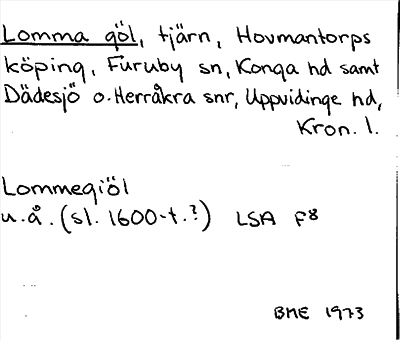 Lomma göl, tjärn, Hovmantorps
köping, Furuby sn, Konga hd samt
Dädesjö o. Herråkra snr, Uppvidinge hd,
Kron. l.
Lommegiöl
u.å. (sl. 1600-t.?) LSA F8
BME 1973